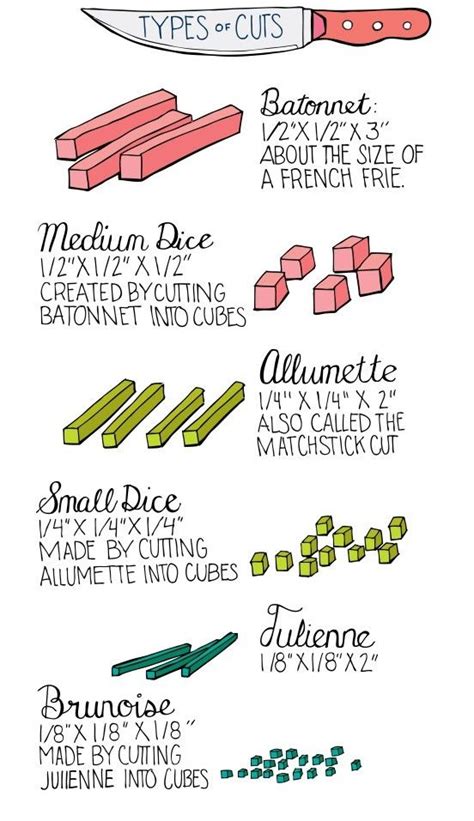 TYPES of CUTS
Batonnet:
1/2"X1/2"X3"
ABOUT THE SIZE OF
A FRENCH FRIE.
Medium Dice
1/2"X1/2"X1/2"
CREATED BY CUTTING
BATONNET INTO CUBES
Allumette
1/4"X1/4"X2"
ALSO CALLED THE
MATCHSTICK CUT
Small Dice
1/4"X1/4"X1/4"
MADE BY CUTTING
ALLUMETTE INTO CUBES
Julienne
1/8"X1/8"X2"
Brunoise
1/8"X1/8"X1/8"
MADE BY CUTTING
JULIENNE INTO CUBES